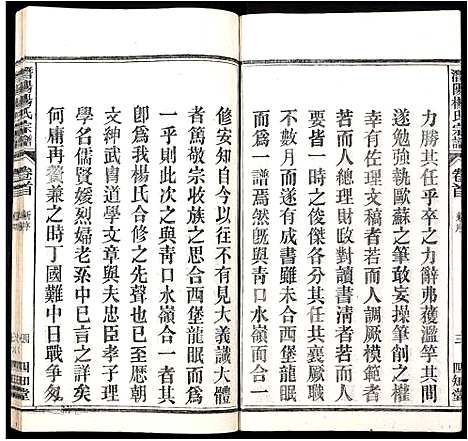 潛陽楊氏宗譜
卷首
新序
三
四知堂
力勝其任乎卒之力辭弗獲濫竽其間
遂勉強執歐蘇之筆敢妄操筆削之權
幸有佐理文稿者有人調厥模範者有
人而人總理財政對讀書清者若而人
皆是一時之俊傑各分其任共襄厥成
不數月告有成書雖未若合西堡龍眠
而為一譜焉然既與青口水嶺合而一
修安知自今以往不有見大義識大體
者篤敬宗收族之思合西堡龍眠而為
一乎則此次之與青口水嶺合一者不
卽為我楊氏合修之先聲也已至於歷
文神武甫道學文章與夫忠臣孝子理
學名儒賢媛烈婦老泵中已言之詳矣
何庸再贅兼之時丁國難中日戰爭匆
潛陽楊氏宗譜
卷首
新序
四
四知堂